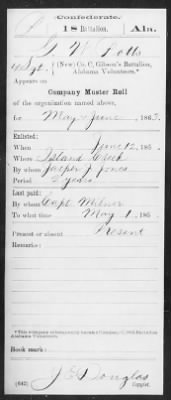 Confederate.
18 Battalion. Ala.
(New) Co. C, Gibson's Battalion,
Alabama Volunteers.*
Appears on
Company Muster Roll
of the organization named above,
for May & June, 186
Enlisted:
When June 12, 186
Where Island Creek
By whom Jasper J. Jones
Period 3 years
Last paid:
By whom Capt. Milner
To what time May 1, 186
Present or absent Present
Remarks:
Alabama Volunteers.
Book mark:
J. H. Douglas
(642) Copyist.